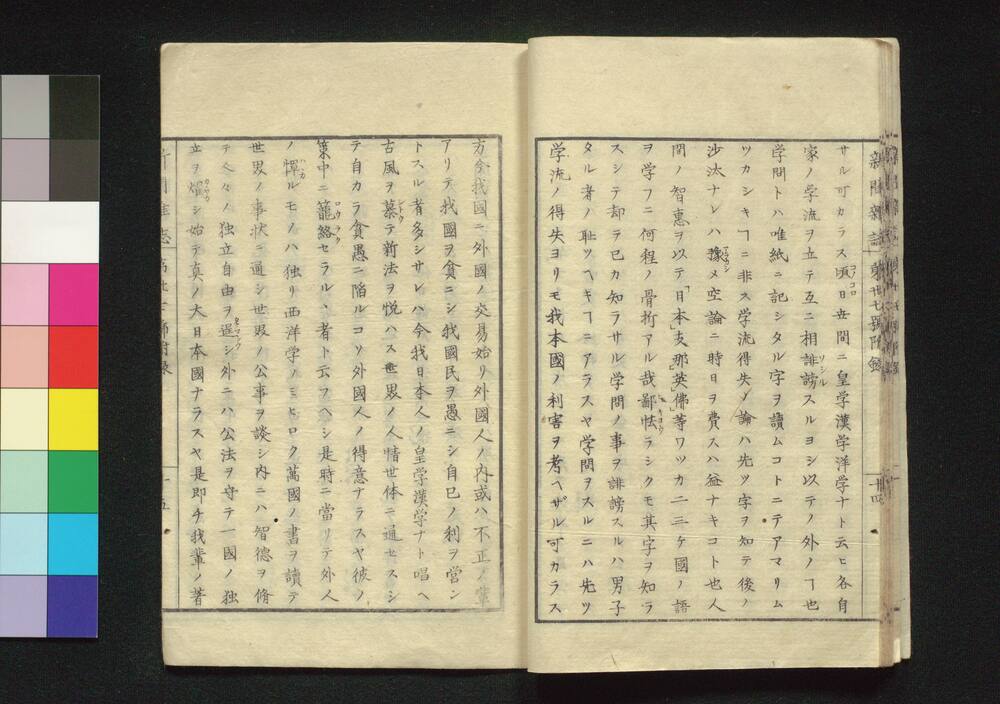 新聞雑誌 第廿七號附録 十四
サル可カラス頃日世間ニ皇学漢学洋学ナト云ヒ各自
家ノ学流ヲ立テ互ニ相誹謗スルヨシ以テノ外ノヿ也
学問トハ唯紙ニ記シタル字ヲ讀ムコトニテアマリム
ツカシキヿニ非ス学流得失ノ論ハ先ツ字ヲ知テ後ノ
沙汰ナレハ豫メ空論ニ時日ヲ費スハ益ナキコト也人
間ノ智惠ヲ以テ「日本」支那「英」佛等ワツカ二三ケ國ノ語
ヲ学フニ何程ノ骨折アル哉鄙怯ラシクモ其字ヲ知ラ
スシテ却テ已カ知ラサル学問ノ事ヲ誹謗スルハ男子
タル者ノ耻ツヘキヿニアラスヤ学問ヲスルニハ先ツ
学流ノ得失ヨリモ我本國ノ利害ヲ考ヘザル可カラス
方今我國ニ外國ノ交易始リ外國人ノ内或ハ不正ノ輩
アリテ我國ヲ貪ニシ我國民ヲ愚ニシ自已ノ利ヲ營ン
トスル者多シサレハ今我日本人ノ皇学漢学ナト唱ヘ
古風ヲ慕テ新法ヲ悦ハス世界ノ人情世体ニ通セスシ
テ自カラ貪愚ニ陥ルコソ外國人ノ得意ナラスヤ彼ノ
策中ニ籠絡セラルヽ者ト云フヘシ是時ニ當リテ外人
ノ憚ルモノハ独リ西洋学ノミヒロク萬國ノ書ヲ讀テ
世界ノ事状ニ通シ世界ノ公事ヲ談シ内ニハ智德ヲ脩
テ人々ノ独立自由ヲ逞シ外ニハ公法ヲ守テ一國ノ独
立ヲ燿シ始テ真ノ大日本國ナラスヤ是即チ我輩ノ著
十五